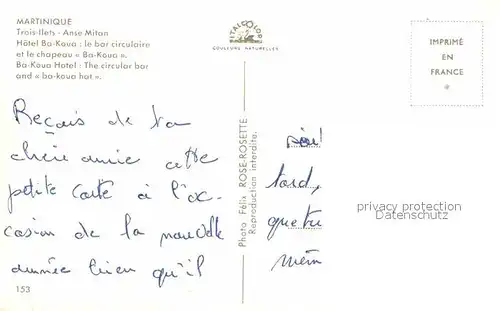 MARTINIQUE
Trois-Ilets - Anse Mitan
Hôtel Ba-Koua : le bar circulaire
et le chapeau « Ba-Koua ».
Ba-Koua Hotel : The circular bar
and « ba-koua hat ».
ITALCOLOR
COULEURS NATURELLES
IMPRIMÉ
EN
FRANCE
*
Reçois de ta
chère amie cette
petite carte à l'oc-
casion de la nouvelle
année bien qu'il
soit
tard,
que tu
mêm
Photo Félix ROSE-ROSETTE
Reproduction interdite.
privacy protection
Datenschutz
153